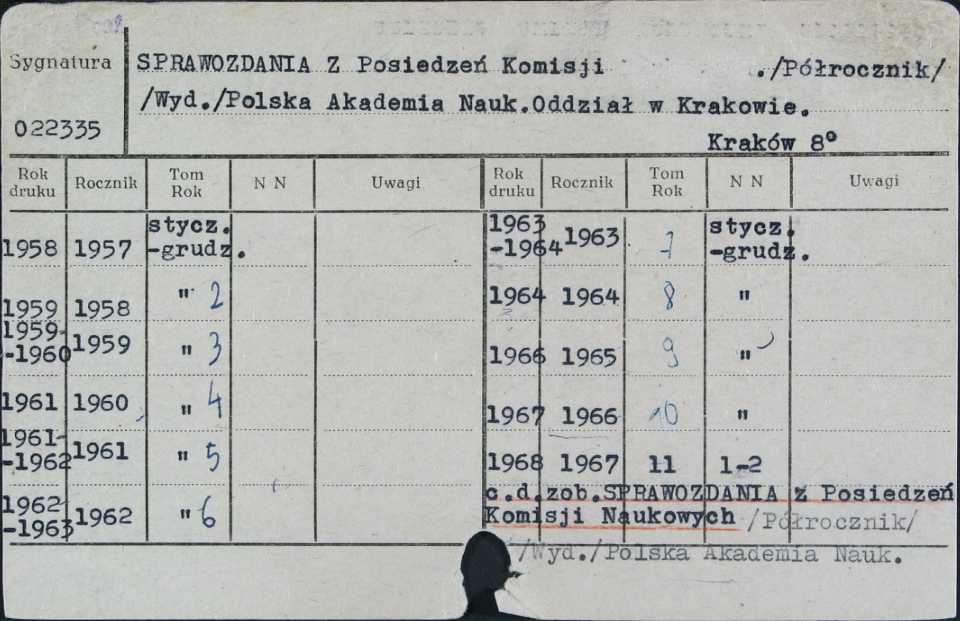 Sygnatura
022335
SPRAWOZDANIA Z Posiedzeń Komisji ./Półrocznik/
/Wyd./Polska Akademia Nauk.Oddział w Krakowie.
Kraków 8°
Rok druku Rocznik Tom Rok N N Uwagi Rok druku Rocznik Tom Rok N N Uwagi
1958 1957 stycz.-grudz. 1963-1964 1963 7 stycz.-grudz.
1959 1958 " 2 1964 1964 8 "
1959-1960 1959 " 3 1966 1965 9 "
1961 1960 " 4 1967 1966 10 "
1961-1962 1961 " 5 1968 1967 11 1-2
1962-1963 1962 " 6
c.d.zob.SPRAWOZDANIA z Posiedzeń
Komisji Naukowych /Półrocznik/
/Wyd./Polska Akademia Nauk.